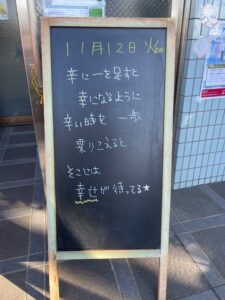 11月12日 火
辛に一を足すと
幸になるように
辛い時を 一歩
乗りこえると
そこには
幸せが待ってる★